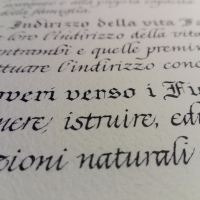 Indirizzo della vita F
e loro l'indirizzo della vita
entrambi e quelle premin
ttuare l'indirizzo conc
overi verso i Fi
nere, istruire, edu
zioni naturali